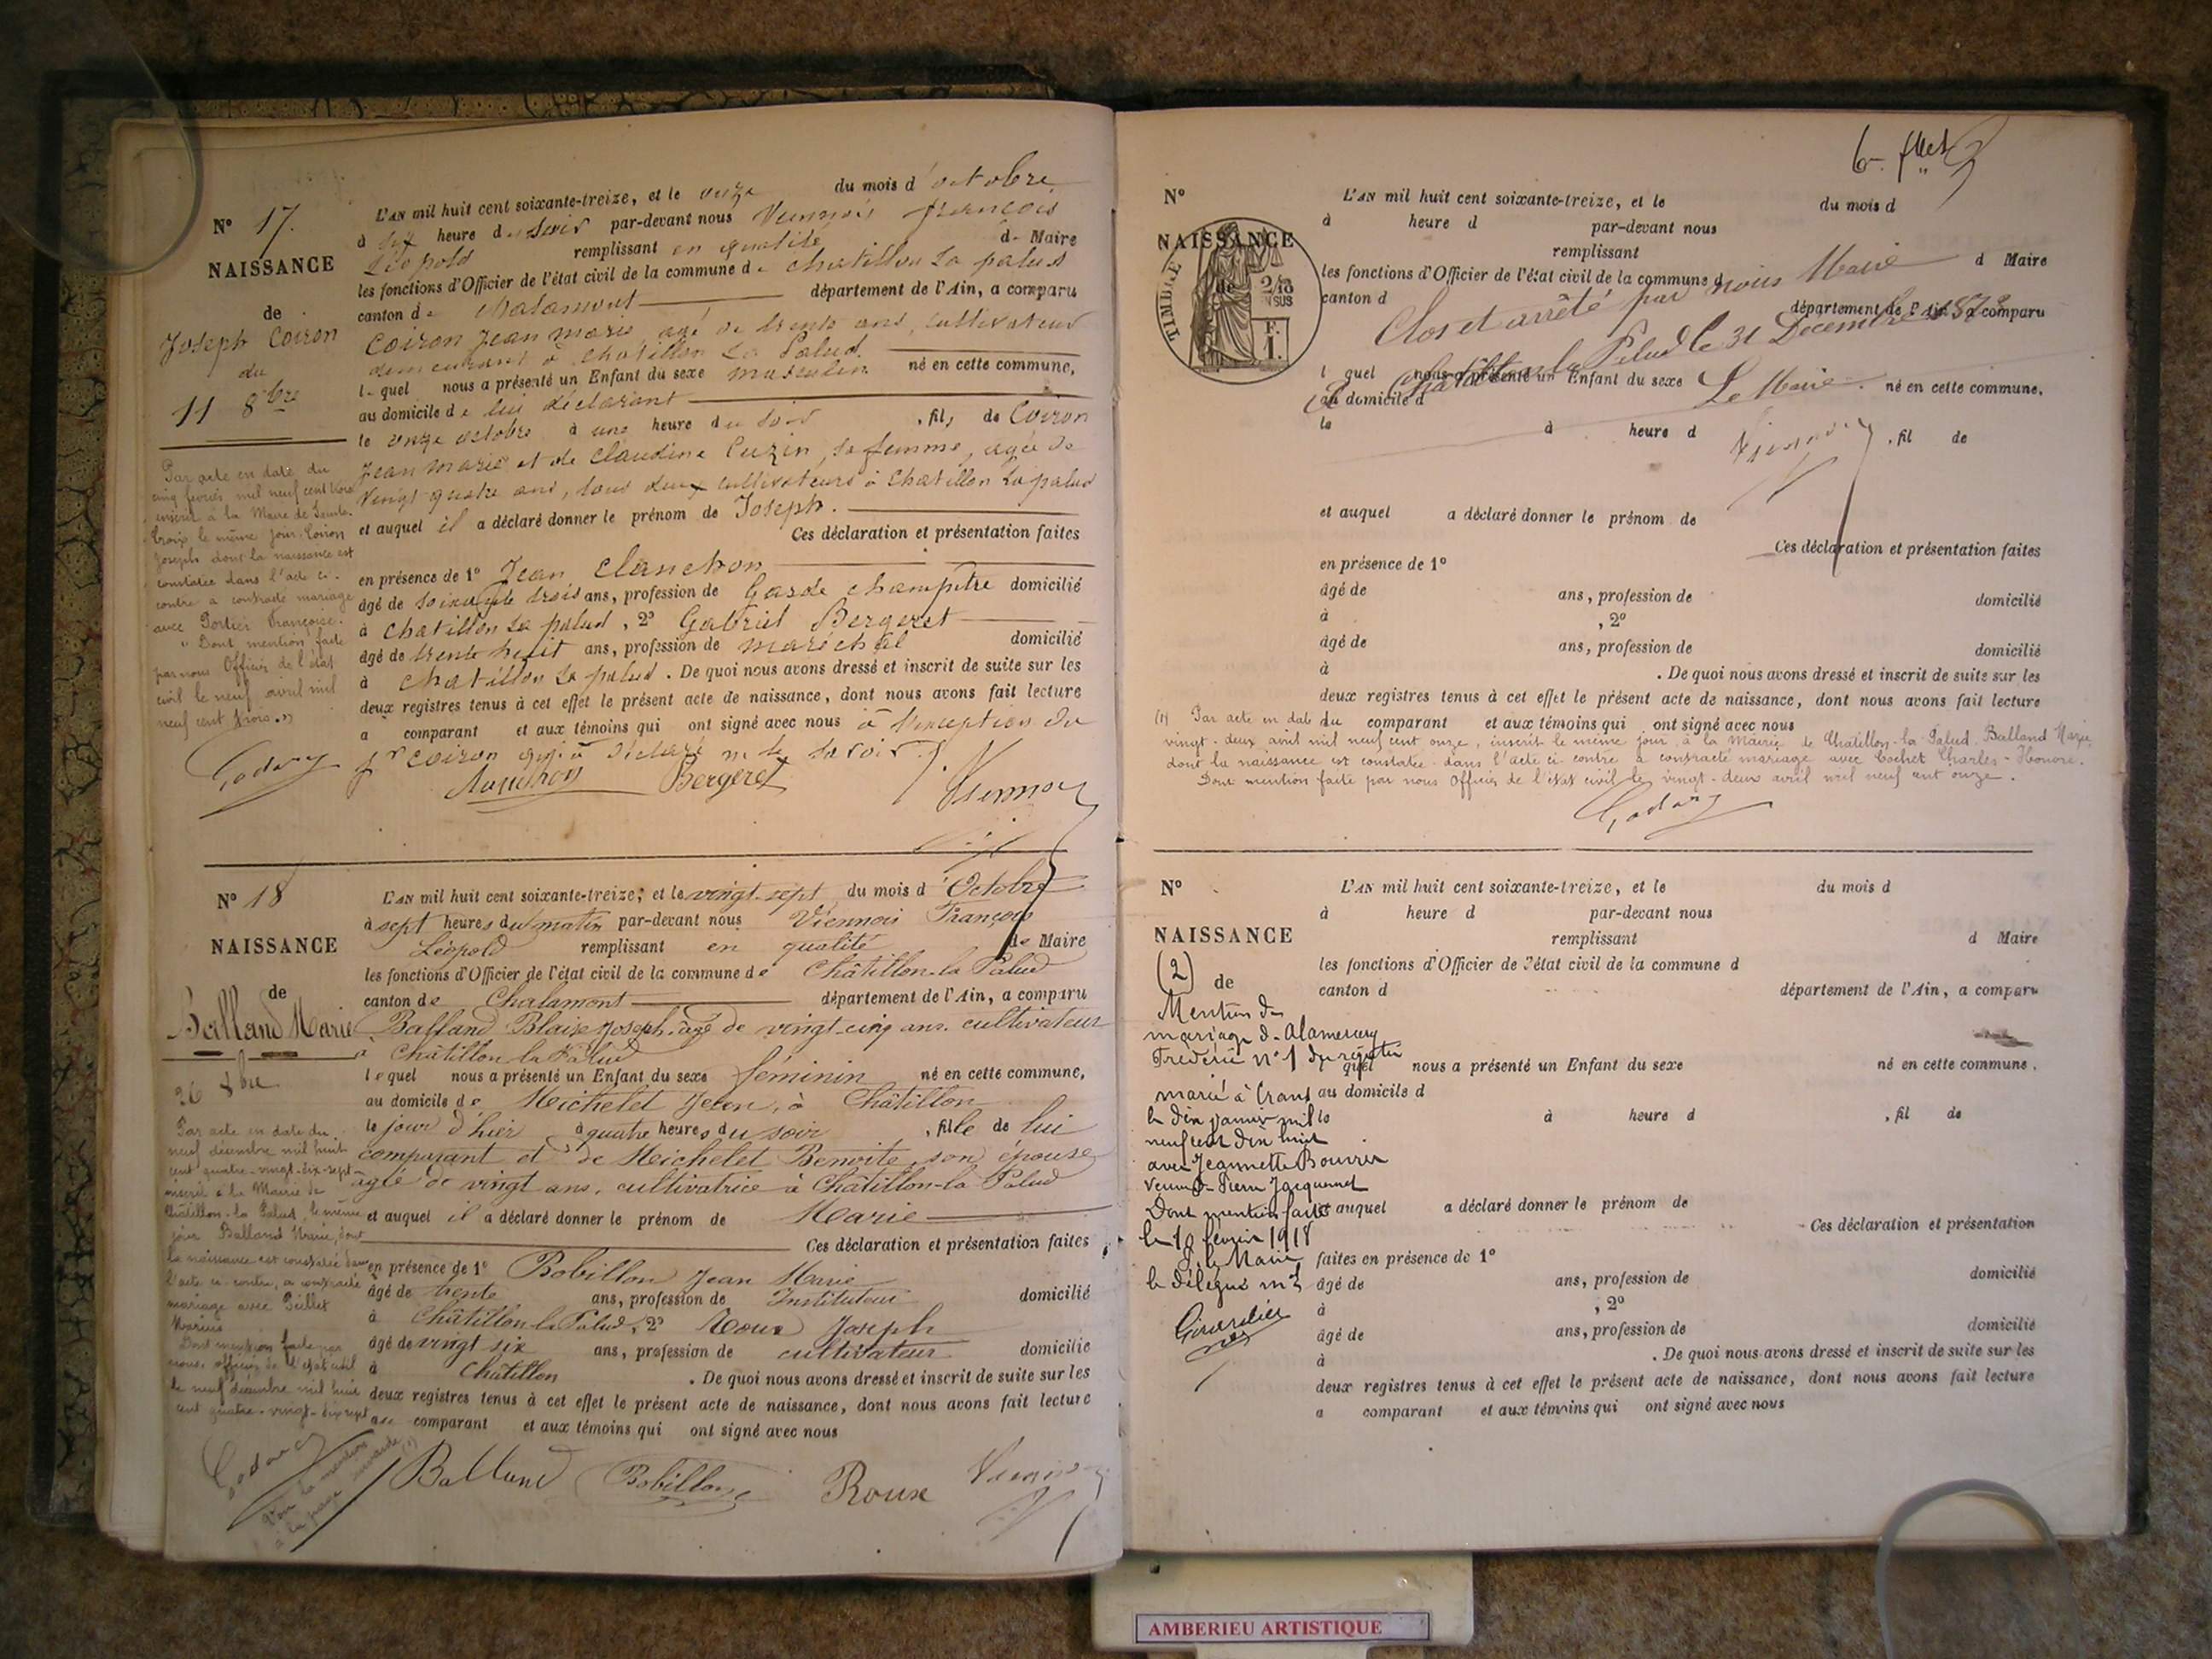 N° 17.
NAISSANCE
de
Joseph Coiron
du
11 8bre
Par acte en date du
cinq février mil neuf cent trois
inscrit à la Mairie de Sainte-
Croix le même jour, Coiron
Joseph dont la naissance est
constatée dans l'acte ci-
contre a contracté mariage
avec Portier Françoise.
"Dont mention faite
par nous Officier de l'état
civil le neuf avril mil
neuf cent trois."
Godard
L'AN mil huit cent soixante-treize, et le onze du mois d'octobre
à six heure du soir par-devant nous Viennois françois
Léopold remplissant en qualité de Maire
les fonctions d'Officier de l'état civil de la commune de Chatillon La palud
canton de Chalamont département de l'Ain, a comparu
Coiron Jean marie, agé de trente ans, cultivateur
demeurant à Chatillon La Palud.
lequel nous a présenté un Enfant du sexe masculin né en cette commune,
au domicile de lui déclarant
le onze octobre à une heure du soir, fils de Coiron
Jean marie et de Claudine Cuzin, sa femme, agée de
vingt-quatre ans, tous deux cultivateurs à Chatillon La palud
et auquel il a déclaré donner le prénom de Joseph.
Ces déclaration et présentation faites
en présence de 1° Jean Clanchon
âgé de soixante trois ans, profession de Garde champêtre domicilié
à Chatillon La palud, 2° Gabriel Bergeret
âgé de trente huit ans, profession de maréchal domicilié
à Chatillon La palud. De quoi nous avons dressé et inscrit de suite sur les
deux registres tenus à cet effet le présent acte de naissance, dont nous avons fait lecture
a comparant et aux témoins qui ont signé avec nous à l'exception du
sr Coiron qui a déclaré ne le savoir.
Bergeret Viennois
N° 18
NAISSANCE
de
Balland Marie
26 8bre
Par acte en date du
neuf décembre mil huit
cent quatre-vingt-dix-sept
inscrit à la Mairie de
Châtillon-la-Palud, le même
jour Balland Marie, dont
la naissance est constatée dans
l'acte ci-contre, a contracté
mariage avec Peillet
Marius
Dont mention faite par
nous, officier de l'état civil
le neuf décembre mil huit
cent quatre-vingt-dix-sept
Godard
Voir la mention
à la page (1)
L'AN mil huit cent soixante-treize; et le vingt-sept du mois d'Octobre
à sept heures du matin par-devant nous Viennois François
Léopold remplissant en qualité de Maire
les fonctions d'Officier de l'état civil de la commune de Châtillon-la Palud
canton de Chalamont département de l'Ain, a comparu
Balland Blaise Joseph, âgé de vingt-cinq ans, cultivateur
à Châtillon-la Palud
lequel nous a présenté un Enfant du sexe féminin né en cette commune,
au domicile de Michelet Jean, à Châtillon
le jour d'hier à quatre heures du soir, fille de lui
comparant et de Michelet Benoite, son épouse
agée de vingt ans, cultivatrice à Châtillon-la Palud
et auquel il a déclaré donner le prénom de Marie
Ces déclaration et présentation faites
en présence de 1° Bobillon Jean Marie
âgé de trente ans, profession de Instituteur domicilié
à Châtillon-la Palud, 2° Roux Joseph
âgé de vingt six ans, profession de cultivateur domicilié
à Châtillon. De quoi nous avons dressé et inscrit de suite sur les
deux registres tenus à cet effet le présent acte de naissance, dont nous avons fait lecture
au comparant et aux témoins qui ont signé avec nous
Balland Bobillon Roux Viennois
N°
NAISSANCE
de
TIMBRE
2/10
EN SUS
F.
1.
L'AN mil huit cent soixante-treize, et le du mois d
à heure d par-devant nous
remplissant d Maire
les fonctions d'Officier de l'état civil de la commune d
canton d département de l'Ain, a comparu
Clos et arrêté par nous Maire
de Châtillon la Palud le 31 Décembre 1873
Le Maire
Viennois
l quel nous a présenté un Enfant du sexe né en cette commune,
au domicile d
le à heure d , fil de
et auquel a déclaré donner le prénom de
Ces déclaration et présentation faites
en présence de 1°
âgé de ans, profession de domicilié
à , 2°
âgé de ans, profession de domicilié
à . De quoi nous avons dressé et inscrit de suite sur les
deux registres tenus à cet effet le présent acte de naissance, dont nous avons fait lecture
a comparant et aux témoins qui ont signé avec nous
(1) Par acte en date du
vingt-deux avril mil neuf cent onze, inscrit le même jour à la Mairie de Châtillon-la-Palud, Balland Marie,
dont la naissance est constatée dans l'acte ci-contre a contracté mariage avec Cochet Charles-Honoré.
Dont mention faite par nous Officier de l'état civil le vingt-deux avril mil neuf cent onze.
Godard
N°
NAISSANCE
(2) de
Mention de
mariage de Alamercery
Frédéric n°1 du registre
marié à Crans
le dix janvier mil
neuf cent dix huit
avec Jeannette Bouvier
veuve de Pierre Jacquemet
Dont mention faite
le 10 février 1918
P. le Maire
le délégué
L'AN mil huit cent soixante-treize, et le du mois d
à heure d par-devant nous
remplissant d Maire
les fonctions d'Officier de l'état civil de la commune d
canton d département de l'Ain, a comparu
quel nous a présenté un Enfant du sexe né en cette commune,
au domicile d
le à heure d , fil de
et auquel a déclaré donner le prénom de
Ces déclaration et présentation
faites en présence de 1°
âgé de ans, profession de domicilié
à , 2°
âgé de ans, profession de domicilié
à . De quoi nous avons dressé et inscrit de suite sur les
deux registres tenus à cet effet le présent acte de naissance, dont nous avons fait lecture
a comparant et aux témoins qui ont signé avec nous
AMBERIEU ARTISTIQUE